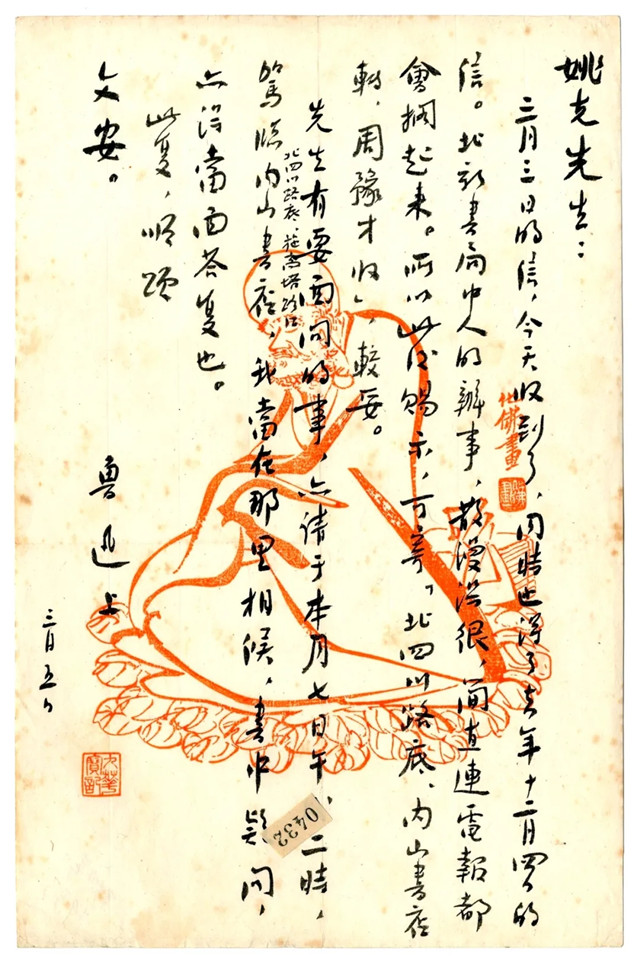 姚克先生：
三月三日的信，今天收到了，同時也得了去年十二月四日的
信。北新書局中人的辦事，散漫得很，簡直連電報都
會擱起来。所以此后賜示，可寄「北四川路底、内山書店
轉，周豫才收」，較妥。
先生有要面問的事，亦請于本月七日午后二時，
駕臨内山書店，我當在那里相候，書中疑問，
北四川路底，施高塔路口
亦得當面荅复也。
此复，順頌
文安。
魯迅 上
三月五日
化佛畫
九華寶記
0432